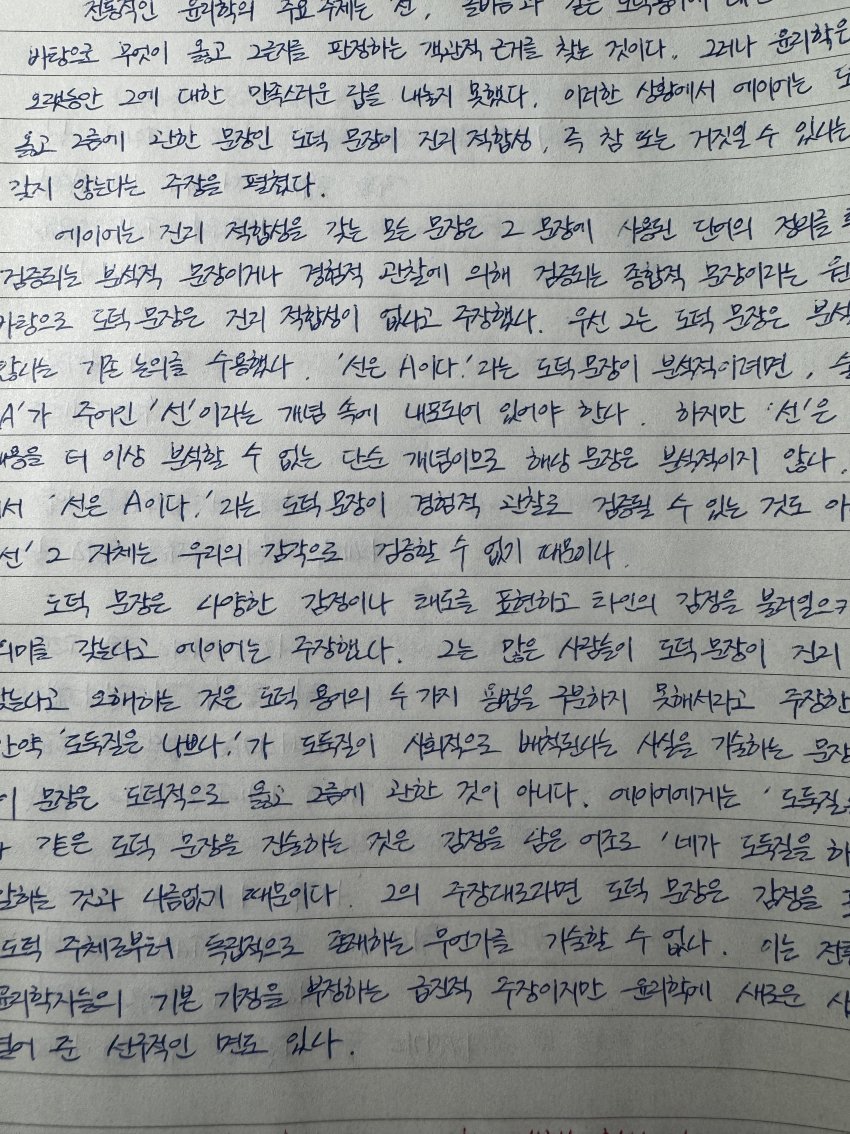 전통적인 윤리학의 주요 주제는 '선', '올바름'과 같은 도덕용어에 대한
바탕으로 무엇이 옳고 그른지를 판정하는 객관적 근거를 찾는 것이다. 그러나 윤리학은
오랫동안 그에 대한 만족스러운 답을 내놓지 못했다. 이러한 상황에서 에이어는 도
옳고 그름에 관한 문장인 도덕 문장이 진리 적합성, 즉 참 또는 거짓일 수 있다는
갖지 않는다는 주장을 펼쳤다.
에이어는 진리 적합성을 갖는 모든 문장은 그 문장에 사용된 단어의 정의를
검증되는 분석적 문장이거나 경험적 관찰에 의해 검증되는 종합적 문장이라는 원
바탕으로 도덕 문장은 진리 적합성이 없다고 주장했다. 우선 그는 도덕 문장은 분석
않다는 기존 논의를 수용했다. '선은 A이다.'라는 도덕 문장이 분석적이려면, 술
A'가 주어인 '선'이라는 개념 속에 내포되어 있어야 한다. 하지만 '선'은
내용을 더 이상 분석할 수 없는 단순 개념이므로 해당 문장은 분석적이지 않다.
서 '선은 A이다.'라는 도덕 문장이 경험적 관찰로 검증될 수 있는 것도 아
선' 그 자체는 우리의 감각으로 검증할 수 없기 때문이다.
도덕 문장은 다양한 감정이나 태도를 표현하고 타인의 감정을 불러일으키
의미를 갖는다고 에이어는 주장했다. 그는 많은 사람들이 도덕 문장이 진리
갖는다고 오해하는 것은 도덕 용어의 두 가지 용법을 구분하지 못해서라고 주장한
만약 '도둑질은 나쁘다.'가 도둑질이 사회적으로 배척된다는 사실을 기술하는 문장
이 문장은 도덕적으로 옳고 그름에 관한 것이 아니다. 에이어에게는 '도둑질은
같은 도덕 문장을 진술하는 것은 감정을 담은 어조로 '네가 도둑질을 하
말하는 것과 다름없기 때문이다. 그의 주장대로라면 도덕 문장은 감정을
도덕 주체로부터 독립적으로 존재하는 무언가를 기술할 수 없다. 이는 전통
윤리학자들의 기본 가정을 부정하는 급진적 주장이지만 윤리학에 새로운 사
열어 준 선구적인 면도 있다.